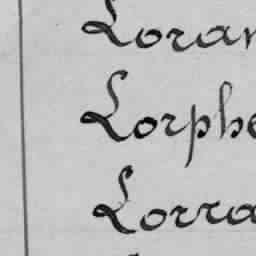 Loran
Lorphe
Lorra